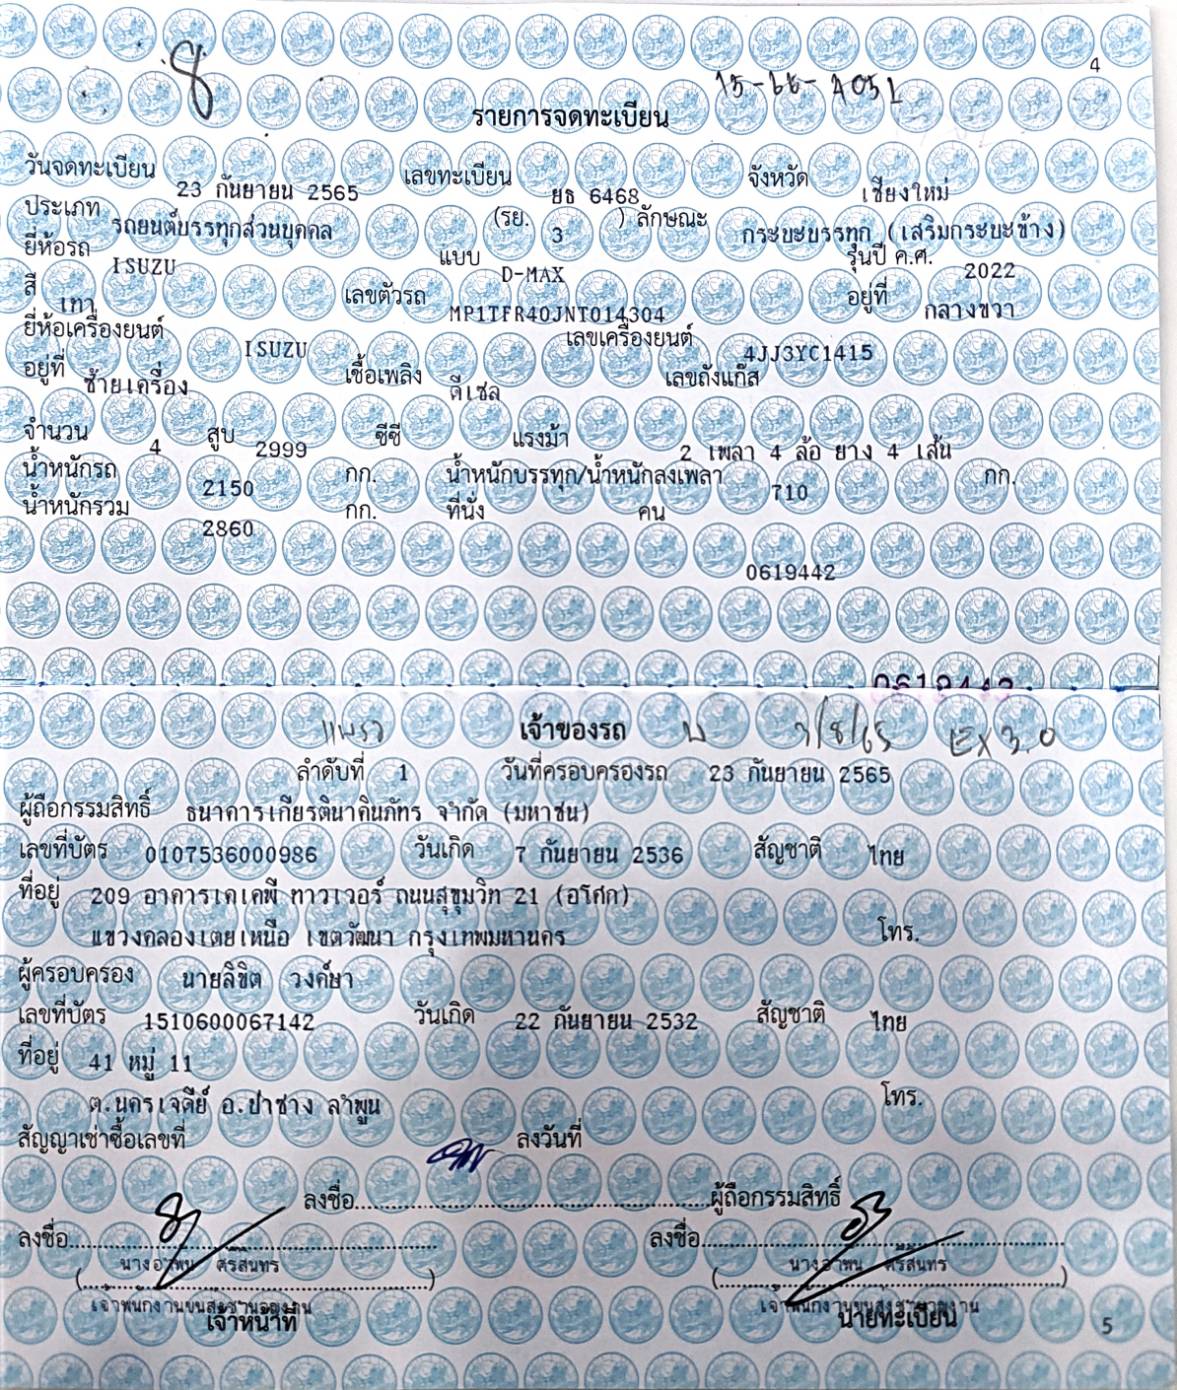 4
8
15-66-A05L
รายการจดทะเบียน
วันจดทะเบียน 23 กันยายน 2565 เลขทะเบียน ยธ 6468 จังหวัด เชียงใหม่
ประเภท รถยนต์บรรทุกส่วนบุคคล (รย. 3 ) ลักษณะ กระบะบรรทุก (เสริมกระบะข้าง)
ยี่ห้อรถ ISUZU แบบ D-MAX รุ่นปี ค.ศ. 2022
สี เทา เลขตัวรถ MP1TFR40JNT014304 อยู่ที่ กลางขวา
ยี่ห้อเครื่องยนต์ ISUZU เลขเครื่องยนต์ 4JJ3YC1415
อยู่ที่ ซ้ายเครื่อง เชื้อเพลิง ดีเซล เลขถังแก๊ส
จำนวน 4 สูบ 2999 ซีซี แรงม้า 2 เพลา 4 ล้อ ยาง 4 เส้น
น้ำหนักรถ 2150 กก. น้ำหนักบรรทุก/น้ำหนักลงเพลา 710 กก.
น้ำหนักรวม 2860 กก. ที่นั่ง คน
0619442
เจ้าของรถ
EX 3.0
ลำดับที่ 1 วันที่ครอบครองรถ 23 กันยายน 2565
ผู้ถือกรรมสิทธิ์ ธนาคารเกียรตินาคินภัทร จำกัด (มหาชน)
เลขที่บัตร 0107536000986 วันเกิด 7 กันยายน 2536 สัญชาติ ไทย
ที่อยู่ 209 อาคารเคเคพี ทาวเวอร์ ถนนสุขุมวิท 21 (อโศก)
แขวงคลองเตยเหนือ เขตวัฒนา กรุงเทพมหานคร โทร.
ผู้ครอบครอง นายลิขิต วงค์ษา
เลขที่บัตร 1510600067142 วันเกิด 22 กันยายน 2532 สัญชาติ ไทย
ที่อยู่ 41 หมู่ 11
ต.นครเจดีย์ อ.ป่าซาง ลำพูน โทร.
สัญญาเช่าซื้อเลขที่ ลงวันที่
ลงชื่อ ผู้ถือกรรมสิทธิ์
ลงชื่อ ลงชื่อ
เจ้าหน้าที่ นายทะเบียน
5